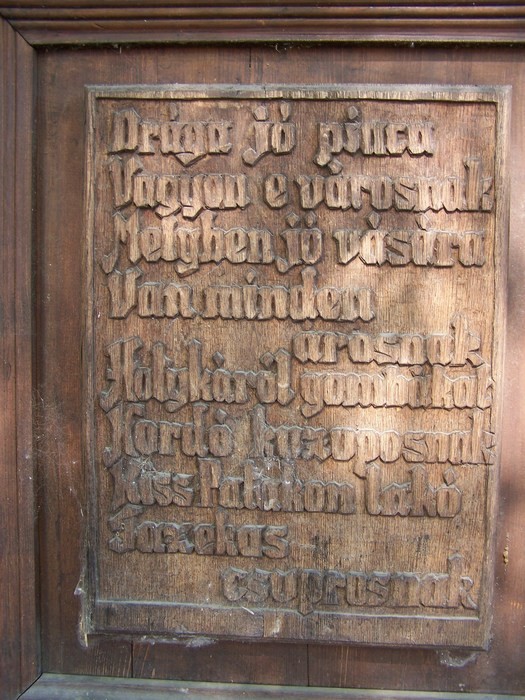 Drága jó piaca
Vagyon e városnak
Melyben jó vására
Van minden
árosnak
Holykáról gombákat
Hordó kuzuposnak
Kiss Patakon lakó
Fazekas
csuprosnak